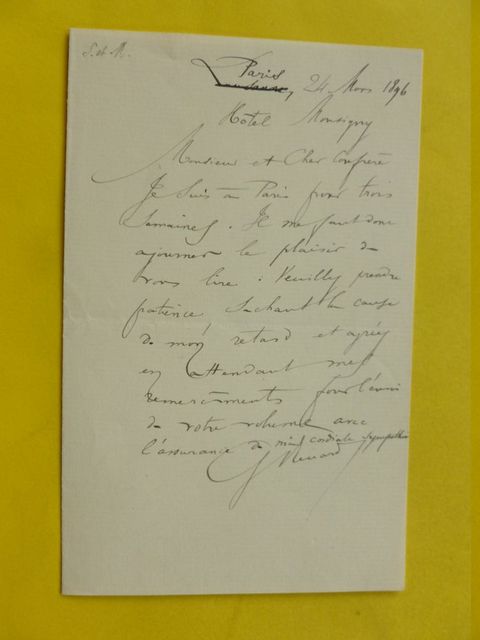 S. et M.
Paris
Lausanne, 24 Mars 1896
Hôtel Monsigny
Monsieur et Cher Confrère
Je suis à Paris pour trois
semaines. Il me faut donc
ajourner le plaisir de
vous lire : Veuillez prendre
patience sachant la cause
de mon retard et agréez
en attendant mes
remerciments pour l'envoi
de votre volume avec
l'assurance de ma cordiale sympathie
G Renard